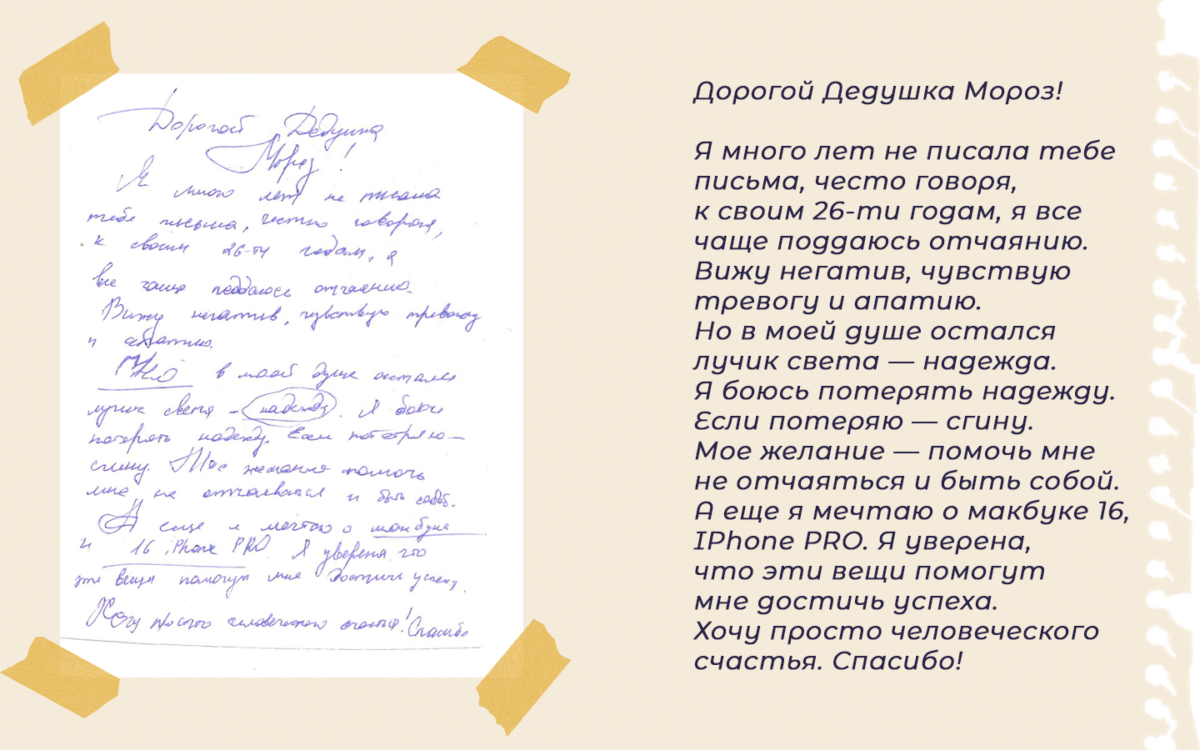 Дорогой Дедушка
Мороз!
Я много лет не писала
тебе письма, честно говоря,
к своим 26-ти годам, я
все чаще поддаюсь отчаянию.
Вижу негатив, чувствую тревогу
и апатию.
Но в моей душе остался
лучик света – надежда. Я боюсь
потерять надежду. Если потеряю –
сгину. Мое желание помочь
мне не отчаиваться и быть собой.
А еще я мечтаю о макбуке
и 16 iPhone PRO. Я уверена, что
эти вещи помогут мне достичь успеха.
Хочу просто человеческого счастья! Спасибо
Дорогой Дедушка Мороз!
Я много лет не писала тебе
письма, често говоря,
к своим 26-ти годам, я все
чаще поддаюсь отчаянию.
Вижу негатив, чувствую
тревогу и апатию.
Но в моей душе остался
лучик света — надежда.
Я боюсь потерять надежду.
Если потеряю — сгину.
Мое желание — помочь мне
не отчаяться и быть собой.
А еще я мечтаю о макбуке 16,
IPhone PRO. Я уверена,
что эти вещи помогут
мне достичь успеха.
Хочу просто человеческого
счастья. Спасибо!